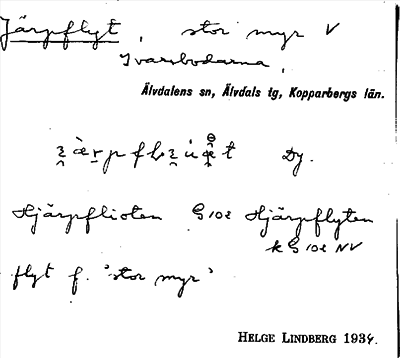 Järpflyt, stor myr V
Ivarsbodarna,
Älvdalens sn, Älvdals tg, Kopparbergs län.
Dy.
Hjärpflioten G 102 Hjärpflyten
k G 102 NV
flyt f. 'stor myr'
HELGE LINDBERG 1934.